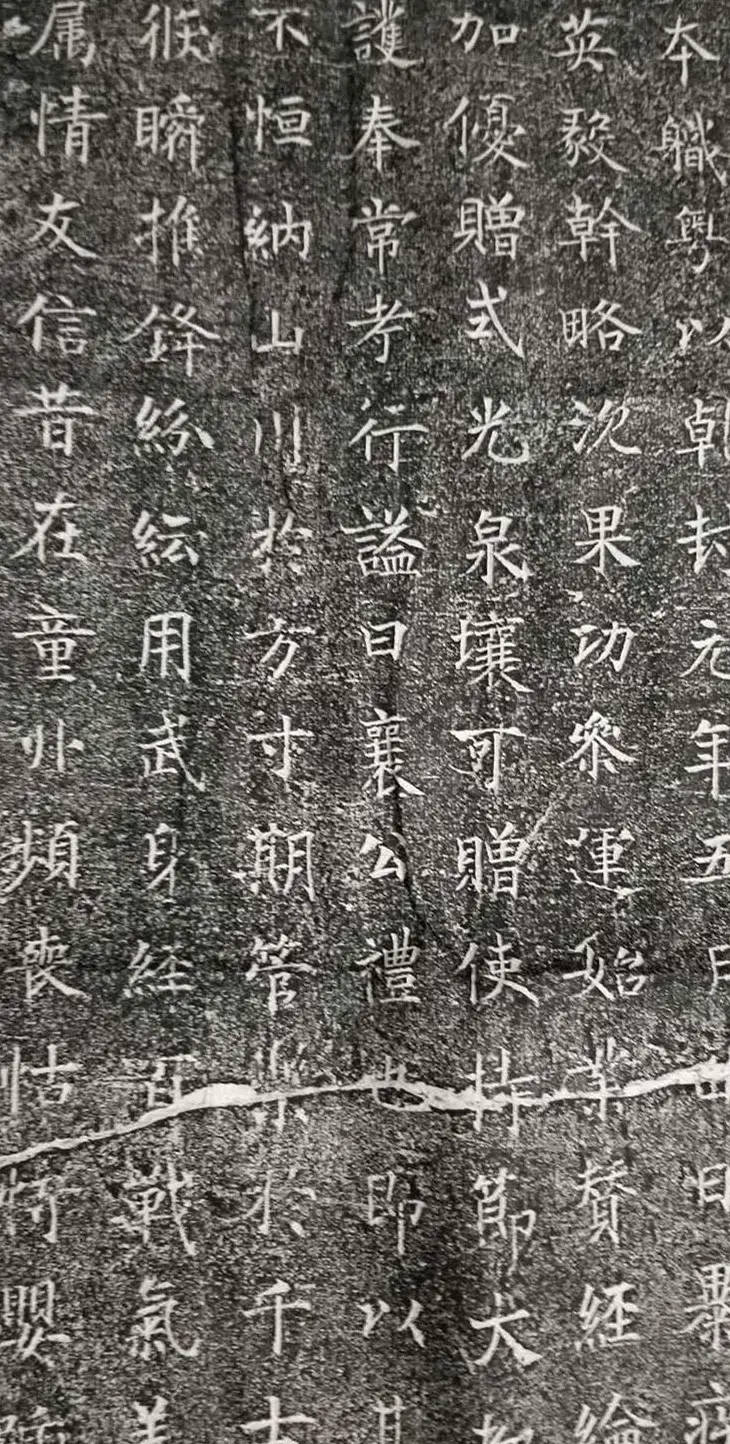 本職粵以乾封元年五月日薨
英毅幹略沉果功參運始業贊經綸
加優贈式光泉壤可贈使持節大都
護奉常考行謚曰襄公禮也即以其
不恒納山川於方寸期管樂於千古
倏瞬推鋒紛紜用武身經百戰氣
属情友信昔在童丱頻喪怙恃嬰